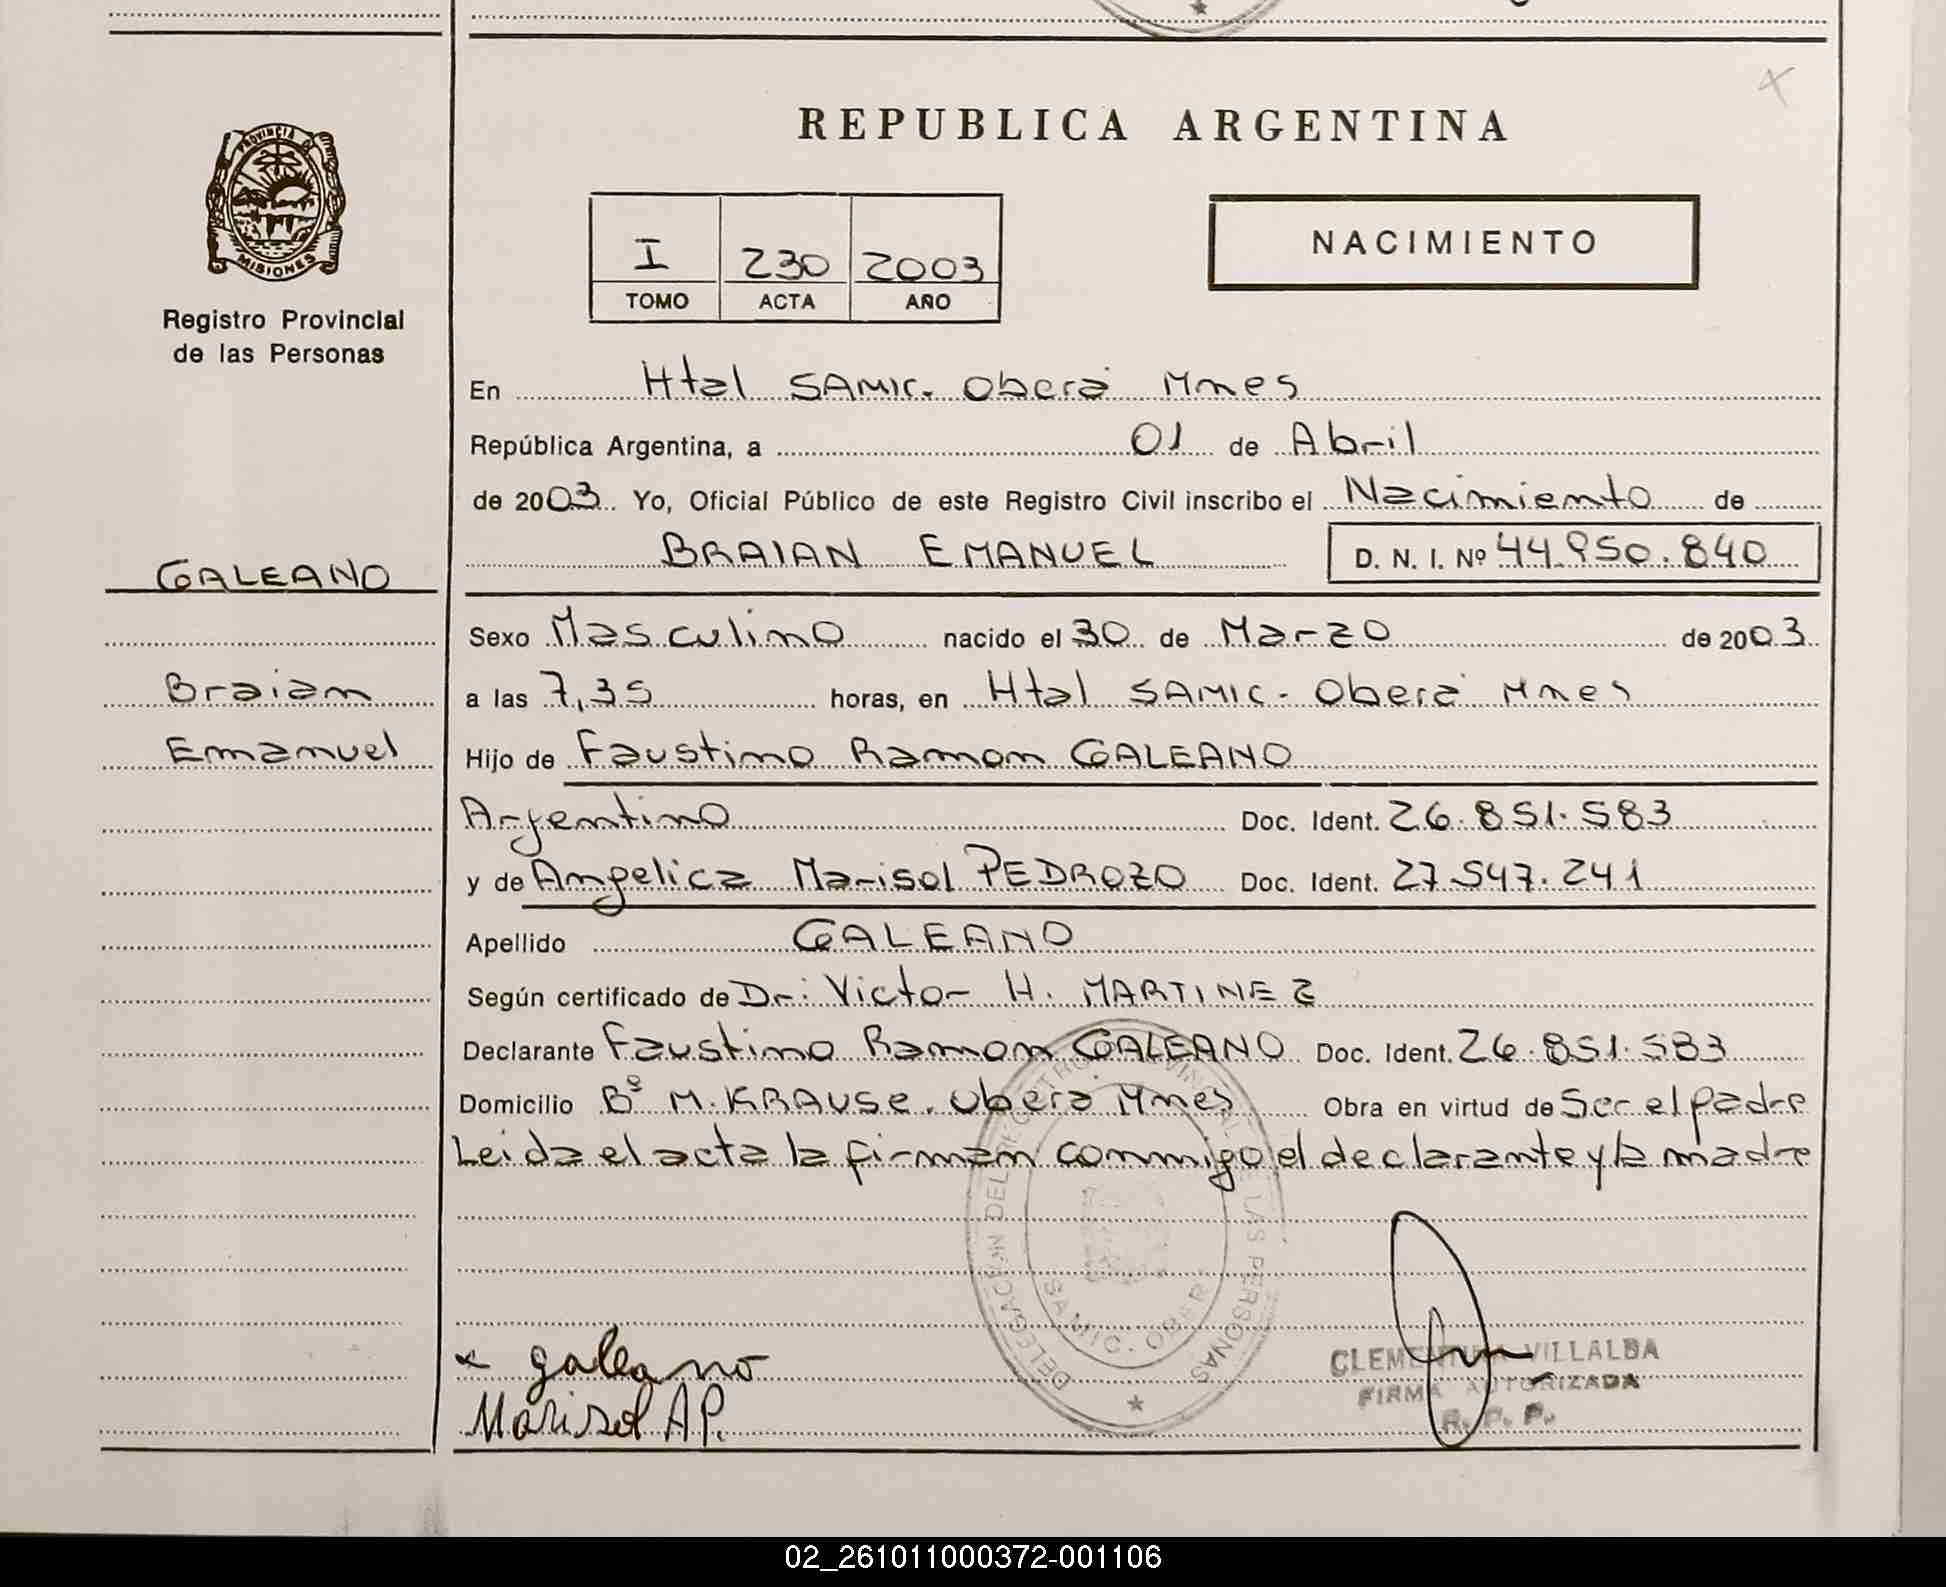 REPUBLICA ARGENTINA
PROVINCIA DE
MISIONES
Registro Provincial
de las Personas
I 230 2003
TOMO ACTA AÑO
NACIMIENTO
En Htal SAMIC. Oberá Mnes
República Argentina, a 01 de Abril
de 2003 Yo, Oficial Público de este Registro Civil inscribo el Nacimiento de
BRAIAN EMANUEL D. N. I. Nº 44.950.840
GALEANO
Sexo Masculino nacido el 30 de Marzo de 2003
Braian
a las 7,35 horas, en Htal SAMIC - Oberá Mnes
Emanuel
Hijo de Faustino Ramon GALEANO
Argentino Doc. Ident. 26.851.583
y de Angelica Marisol PEDROZO Doc. Ident. 27.547.241
Apellido GALEANO
Según certificado de Dr: Victor H. MARTINEZ
Declarante Faustino Ramon GALEANO Doc. Ident. 26.851.583
Domicilio Bº M. KRAUSE. Obera Mnes Obra en virtud de Ser el padre
Leida el acta la firman conmigo el declarante y la madre
DELEGACION DEL REGISTRO PROVINCIAL DE LAS PERSONAS
SAMIC. OBERA
x galeano
Marisol A P.
CLEMENTINA VILLALBA
FIRMA AUTORIZADA
R. P. P.
02_261011000372-001106